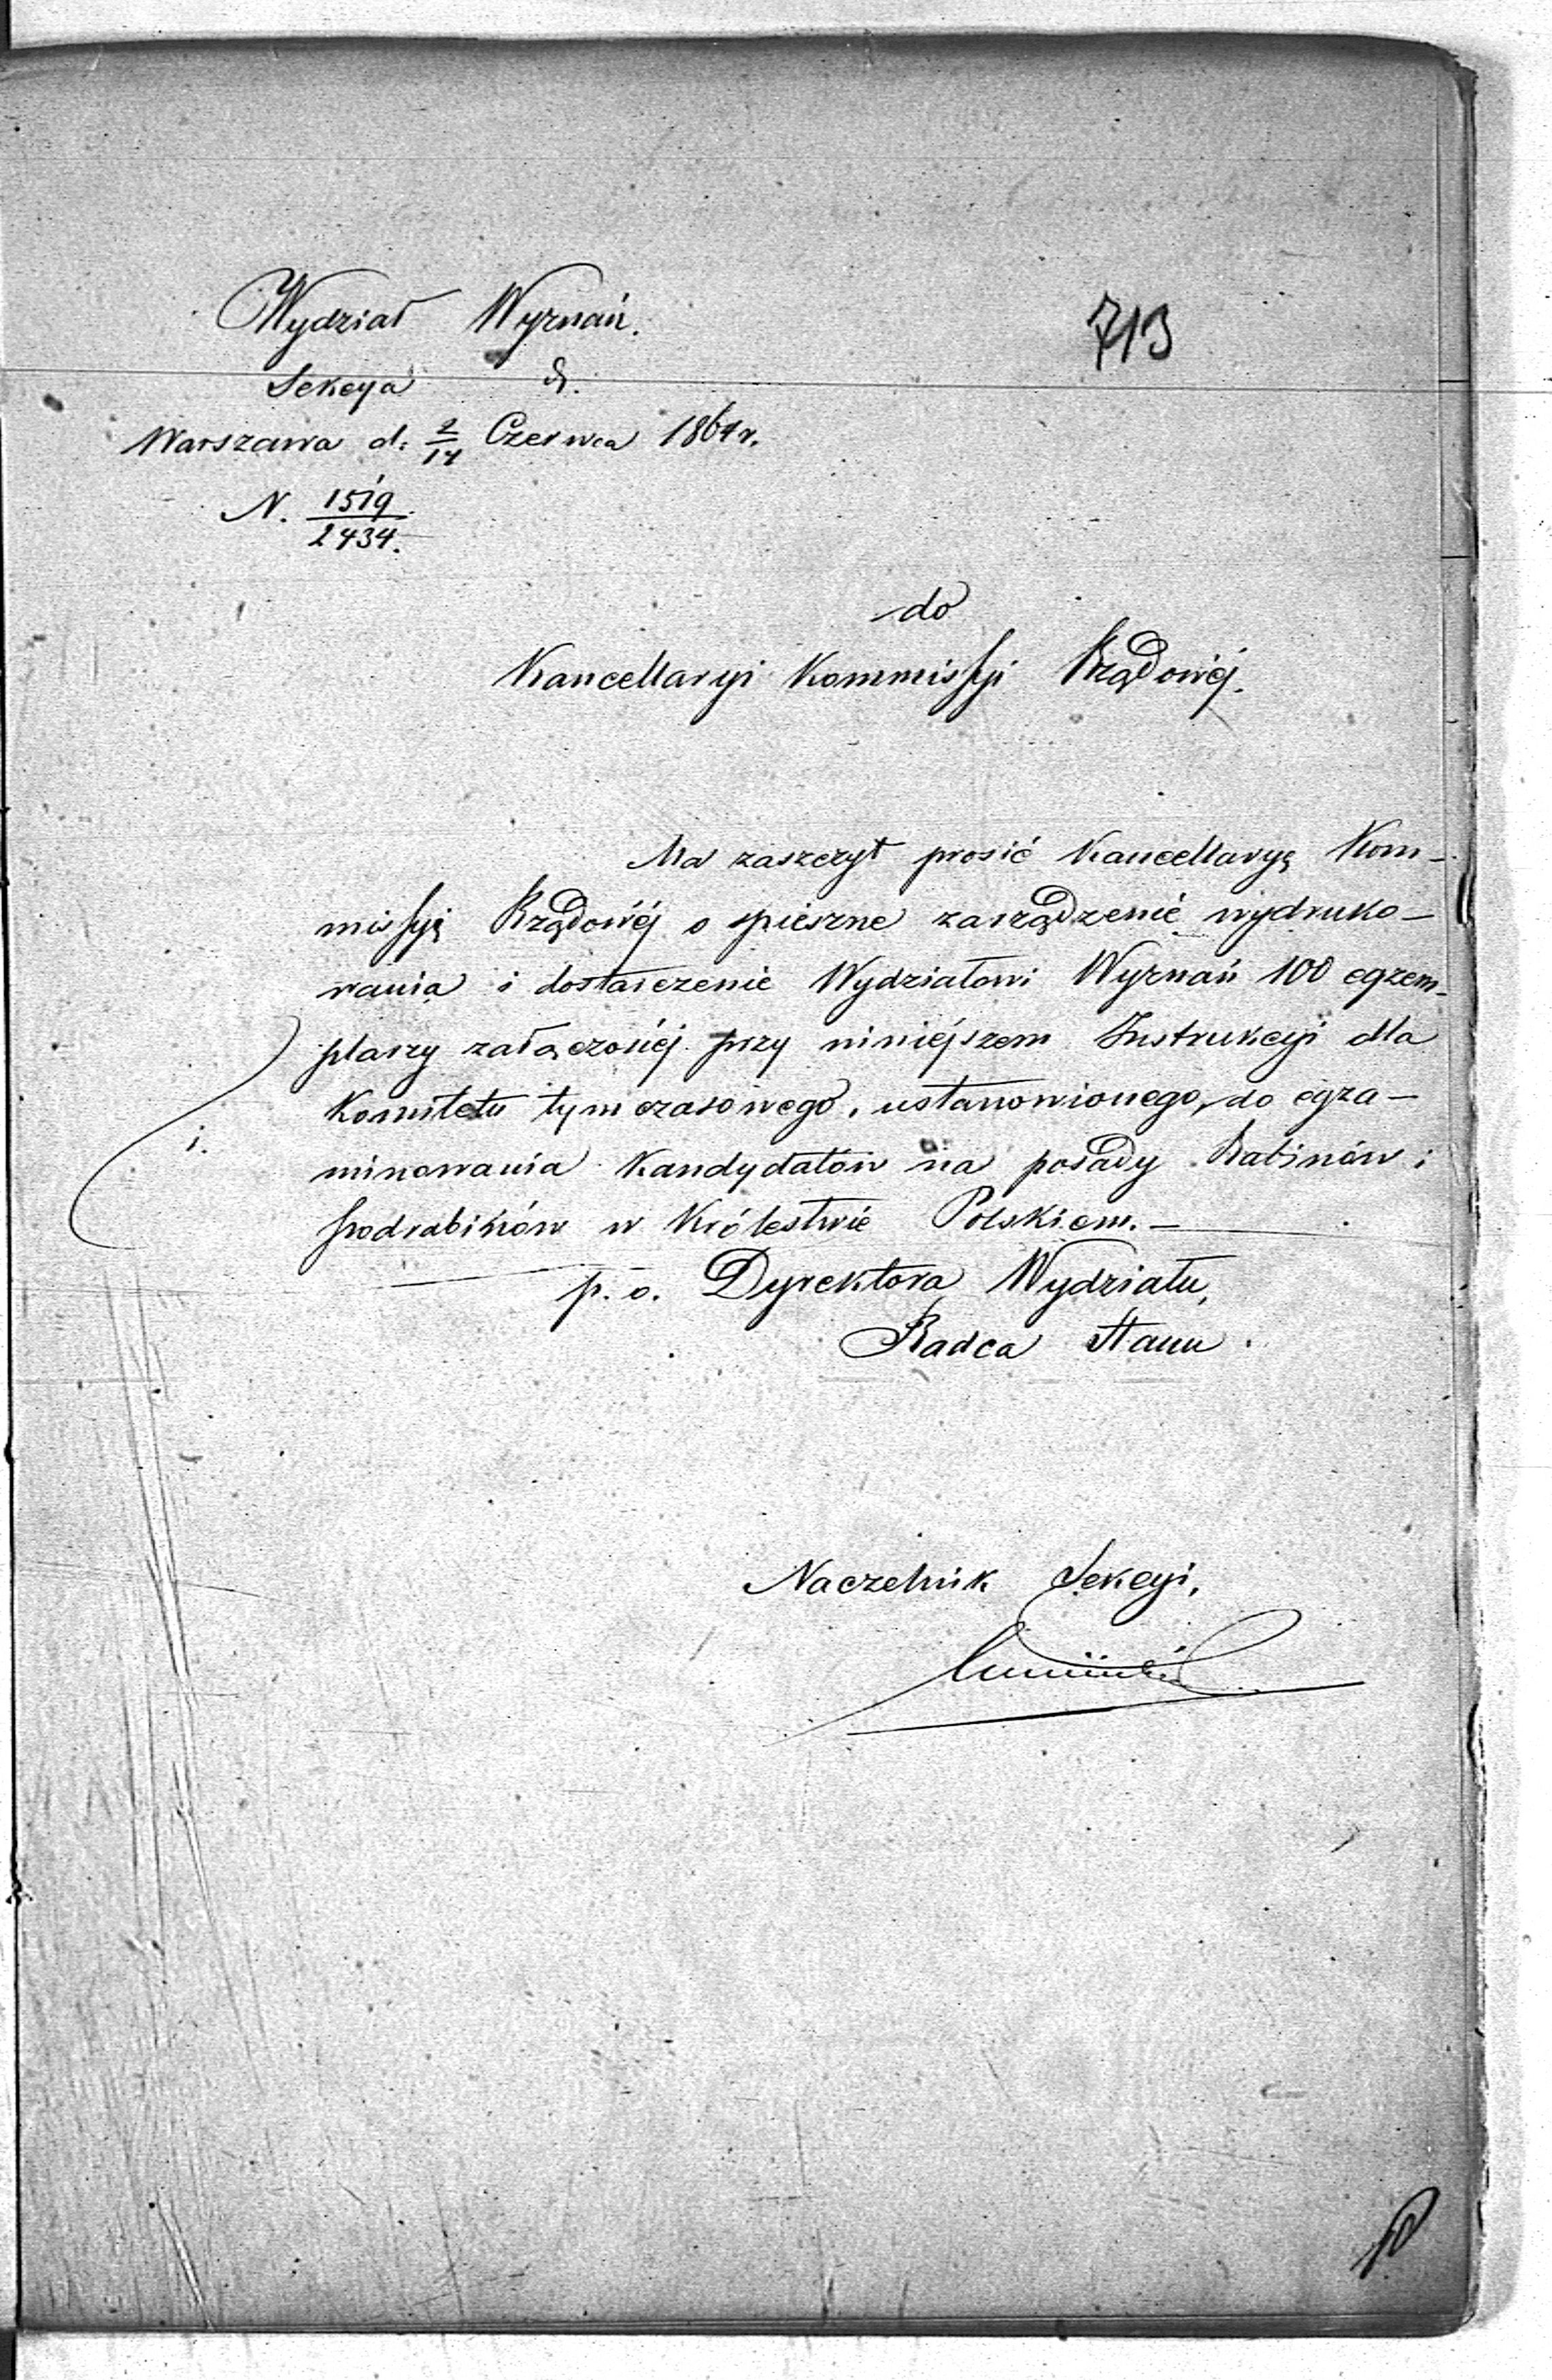 Wydział Wyznań.
713
Sekcya
Warszawa d: 2/14 Czerwca 1864 r.
N. 1519/2434.
do
Kancellaryi Kommissyi Rządowéj.
Ma zaszczyt prosić Kancellaryę Kom-
missyi Rządowéj o spieszne zarządzenie wydruko-
wania i dostarczenie Wydziałowi Wyznań 100 egzem-
plarzy załączonéj przy niniejszem Instrukcyi dla
Komitetu tymczasowego, ustanowionego do egza-
minowania Kandydatów na posady Rabinów i
podrabinów w Królestwie Polskiem.—
p. o. Dyrektora Wydziału,
Radca Stanu
Naczelnik Sekcyi,